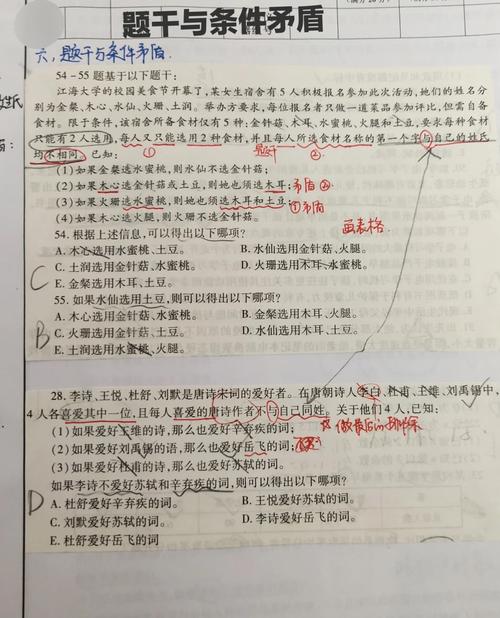 题干与条件矛盾
六、题干与条件矛盾
54－55题基于以下题干：
江海大学的校园美食节开幕了，某女生宿舍有5人积极报名参加此次活动，她们的姓名分
别为金粲、木心、水仙、火珊、土润。举办方要求，每位报名者只做一道菜品参加评比，但需自备
食材。限于条件，该宿舍所备食材仅有5种：金针菇、木耳、水蜜桃、火腿和土豆，要求每种食材
只能有2人选用，每人又只能选用2种食材，并且每人所选食材名称的第一个字与自己的姓氏
均不相同。已知：
① 题干 ②
(1)如果金粲选水蜜桃，则水仙不选金针菇；
(2)如果木心选金针菇或土豆，则她也须选木耳；矛盾②
(3)如果火珊选水蜜桃，则她也须选木耳和土豆；①矛盾
(4)如果木心选火腿，则火珊不选金针菇。
54. 根据上述信息，可以得出以下哪项？ 画表格
A. 木心选用水蜜桃、土豆。 B. 水仙选用金针菇、火腿。
C. 土润选用金针菇、水蜜桃。 D. 火珊选用木耳、水蜜桃。
C
E. 金粲选用木耳、土豆。
55. 如果水仙选用土豆，则可以得出以下哪项？
A. 木心选用金针菇、水蜜桃。 B. 金粲选用木耳、火腿。
B
C. 火珊选用金针菇、土豆。 D. 水仙选用木耳、土豆。
E. 土润选用水蜜桃、火腿。
28. 李诗、王悦、杜舒、刘默是唐诗宋词的爱好者。在唐朝诗人李白、杜甫、王维、刘禹锡中，
4人各喜爱其中一位，且每人喜爱的唐诗作者不与自己同姓。关于他们4人，已知：
(1)如果爱好王维的诗，那么也爱好辛弃疾的词；
(2)如果爱好刘禹锡的语，那么也爱好岳飞的词；
(3)如果爱好杜甫的诗，那么也爱好苏轼的词。
如果李诗不爱好苏轼和辛弃疾的词，则可以得出以下哪项？
D
A. 杜舒爱好辛弃疾的词。 B. 王悦爱好苏轼的词。
C. 刘默爱好苏轼的词。 D. 李诗爱好岳飞的词。
E. 杜舒爱好岳飞的词